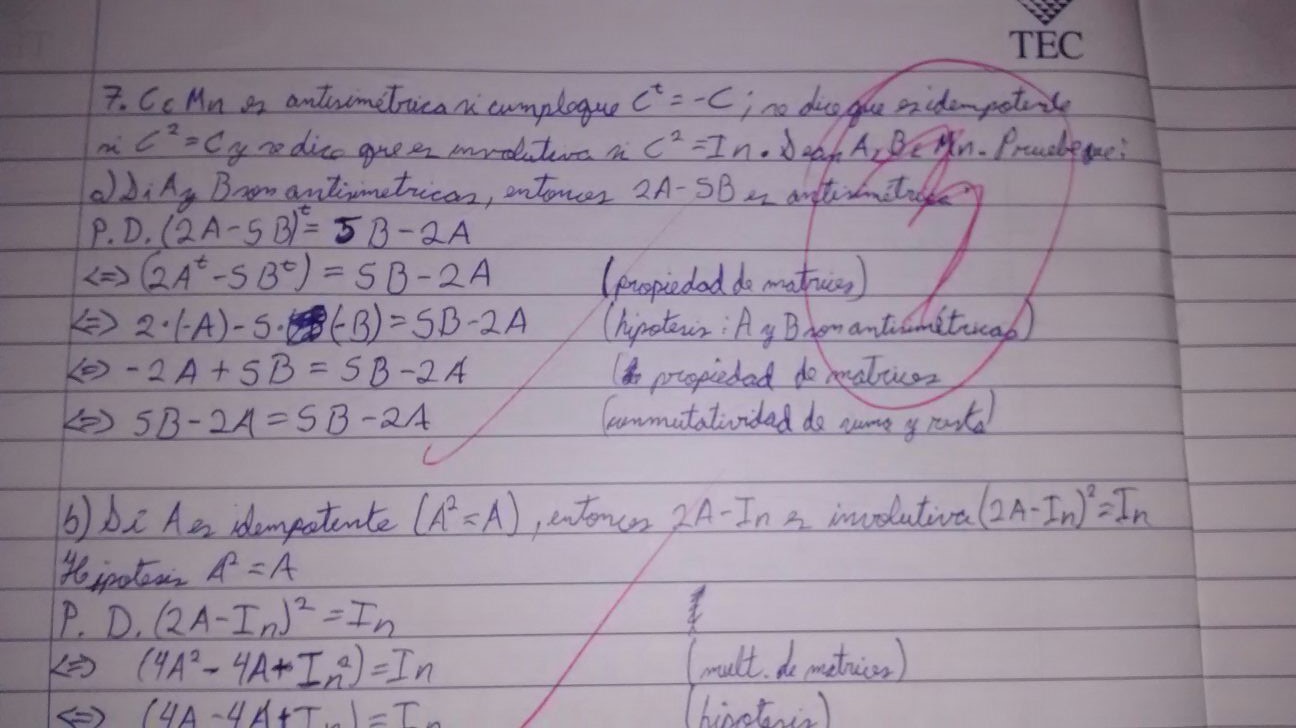 TEC
7. C ∈ Mn es antisimétrica si cumple que C^t = -C; se dice que es idempotente
si C² = C y se dice que es involutiva si C² = In. Sean A, B ∈ Mn. Pruebe que:
a) Si A y B son antisimetricas, entonces 2A - 5B es antisimétrica
P.D. (2A - 5B)^t = 5B - 2A
<=> (2A^t - 5B^t) = 5B - 2A (propiedad de matrices)
<=> 2·(-A) - 5·(-B) = 5B - 2A (hipotesis: A y B son antisimétricas)
<=> -2A + 5B = 5B - 2A (propiedad de matrices
<=> 5B - 2A = 5B - 2A (conmutatividad de suma y resta)
b) Si A es idempotente (A² = A), entonces 2A - In es involutiva (2A - In)² = In
Hipotesis A² = A
P. D. (2A - In)² = In
<=> (4A² - 4A + In²) = In (mult. de matrices)
<=> (4A - 4A + In) = In (hipotesis)